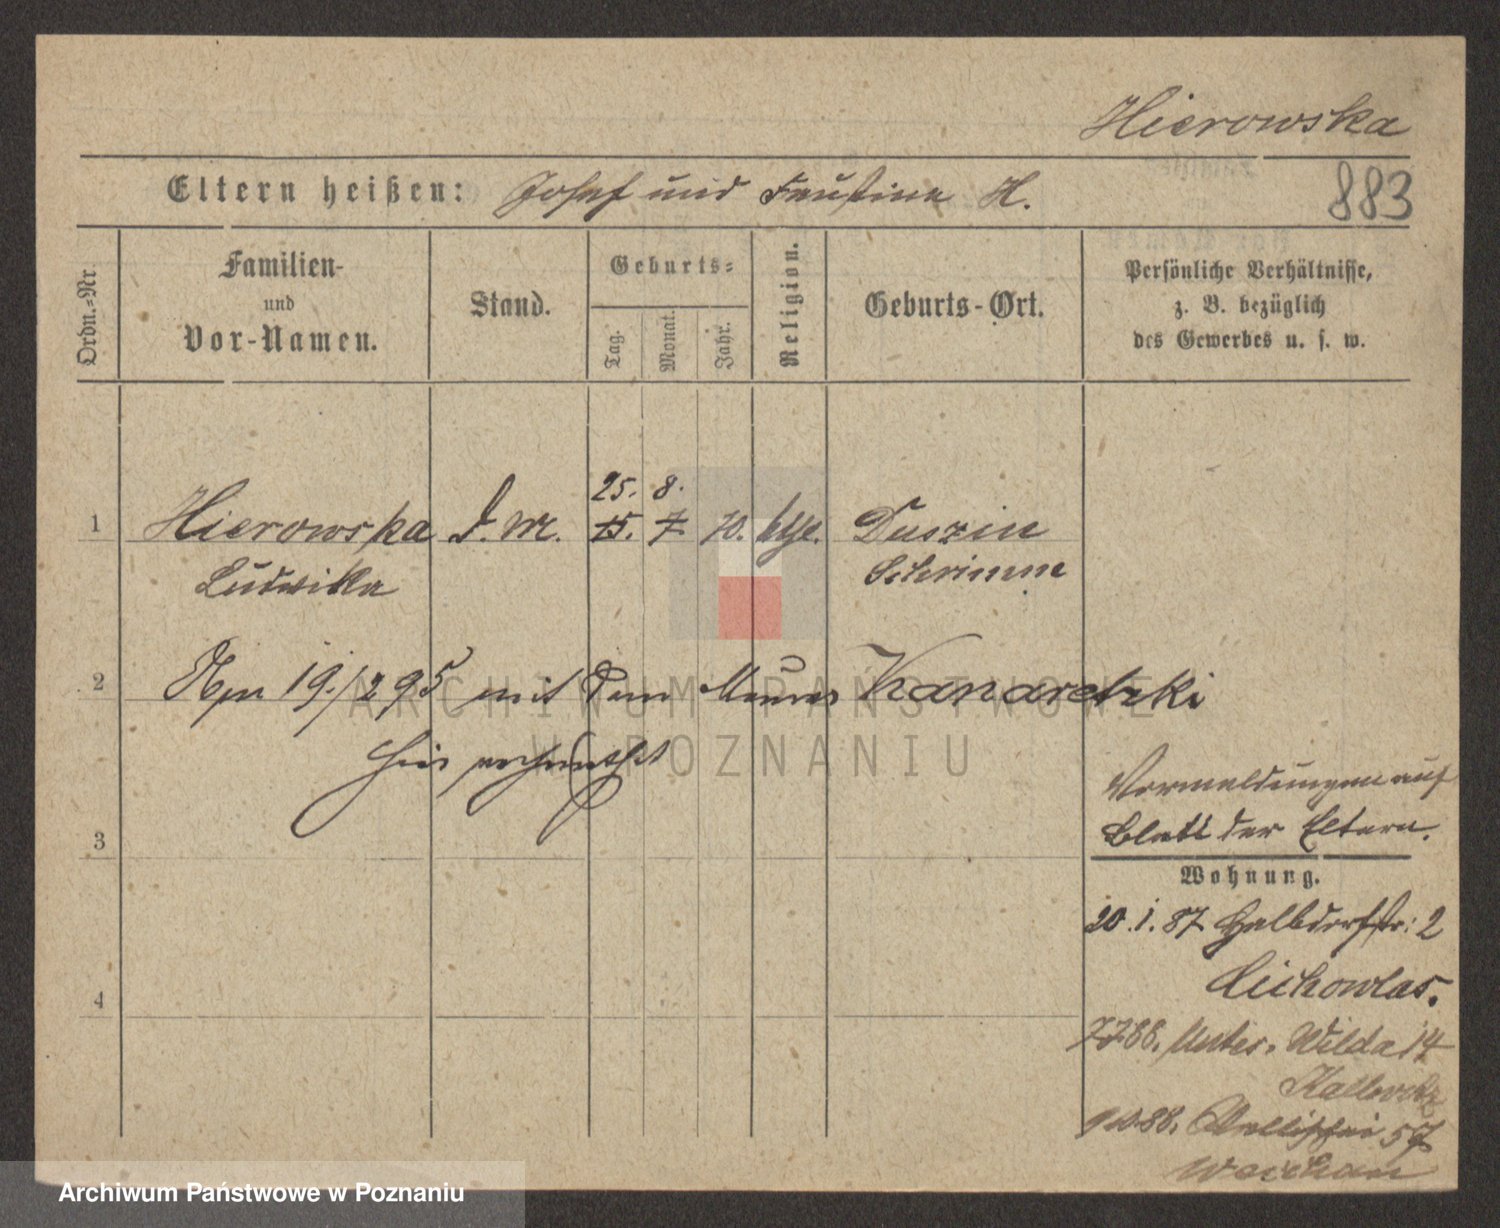 Hierowska
Eltern heißen: Josef und Faustine H.
883
Ordn.-Nr.
Familien-
und
Vor-Namen.
Stand.
Geburts-
Tag.
Monat.
Jahr.
Religion.
Geburts-Ort.
Persönliche Verhältnisse,
z. B. bezüglich
des Gewerbes u. s. w.
25. 8.
1 Hierowska d. M. 15. 7 70. kthl. Duszin
Ludwika Schrimm
2 Am 19./2 95 mit dem Maurer Kanaretzki
hier verheirathet
ARCHIWUM PAŃSTWOWE
W POZNANIU
Vormeldungen auf
Blatt der Eltern.
3
Wohnung.
20.1.87 Halbdorfstr: 2
Cichowlas.
4
7.7.88. Unter-Wilda 14
9.10.88. Wallischei 57
Archiwum Państwowe w Poznaniu